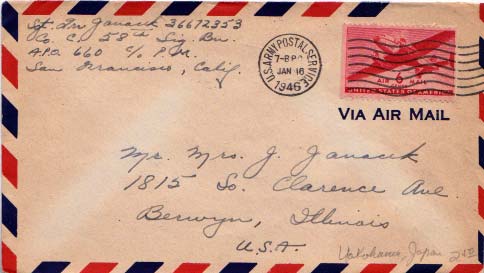 Sgt. Wm Janacek 36672353
Co. C. 58th Sig. Bn.
A.P.O. 660 c/o P.M.
San Francisco, Calif.
U.S. ARMY POSTAL SERVICE
JAN 16
1946
6
AIR MAIL
UNITED STATES OF AMERICA
VIA AIR MAIL
Mr. Mrs. J. Janacek
1815 So. Clarence Ave
Berwyn, Illinois
U.S.A.
Yokohama, Japan